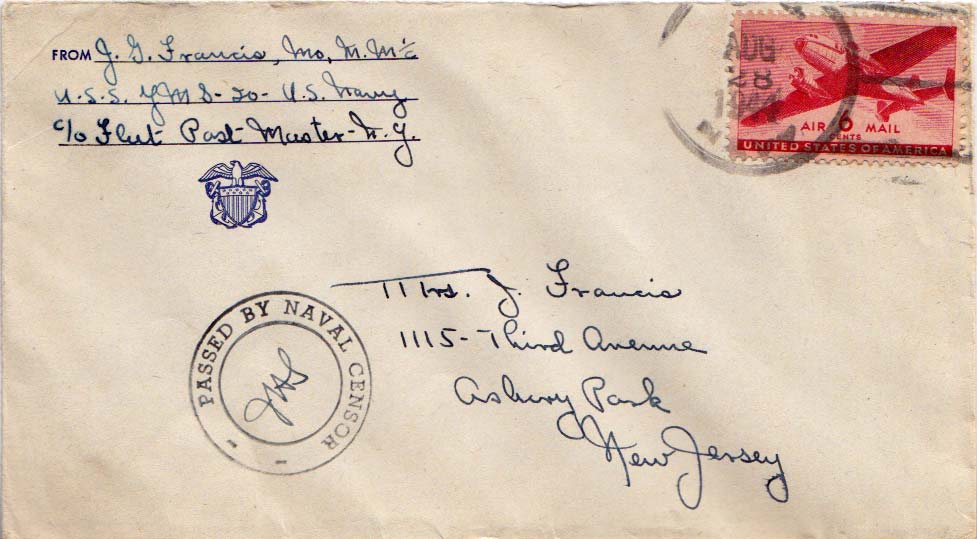 FROM J. G. Francis, Mo. M. M 1/c
U.S.S. YMS-20-U.S. Navy
c/o Fleet Post Master-N.Y.
AUG
28
AIR 6 MAIL
CENTS
UNITED STATES OF AMERICA
Mrs. J. Francis
1115-Third Avenue
Asbury Park
New Jersey
PASSED BY NAVAL CENSOR